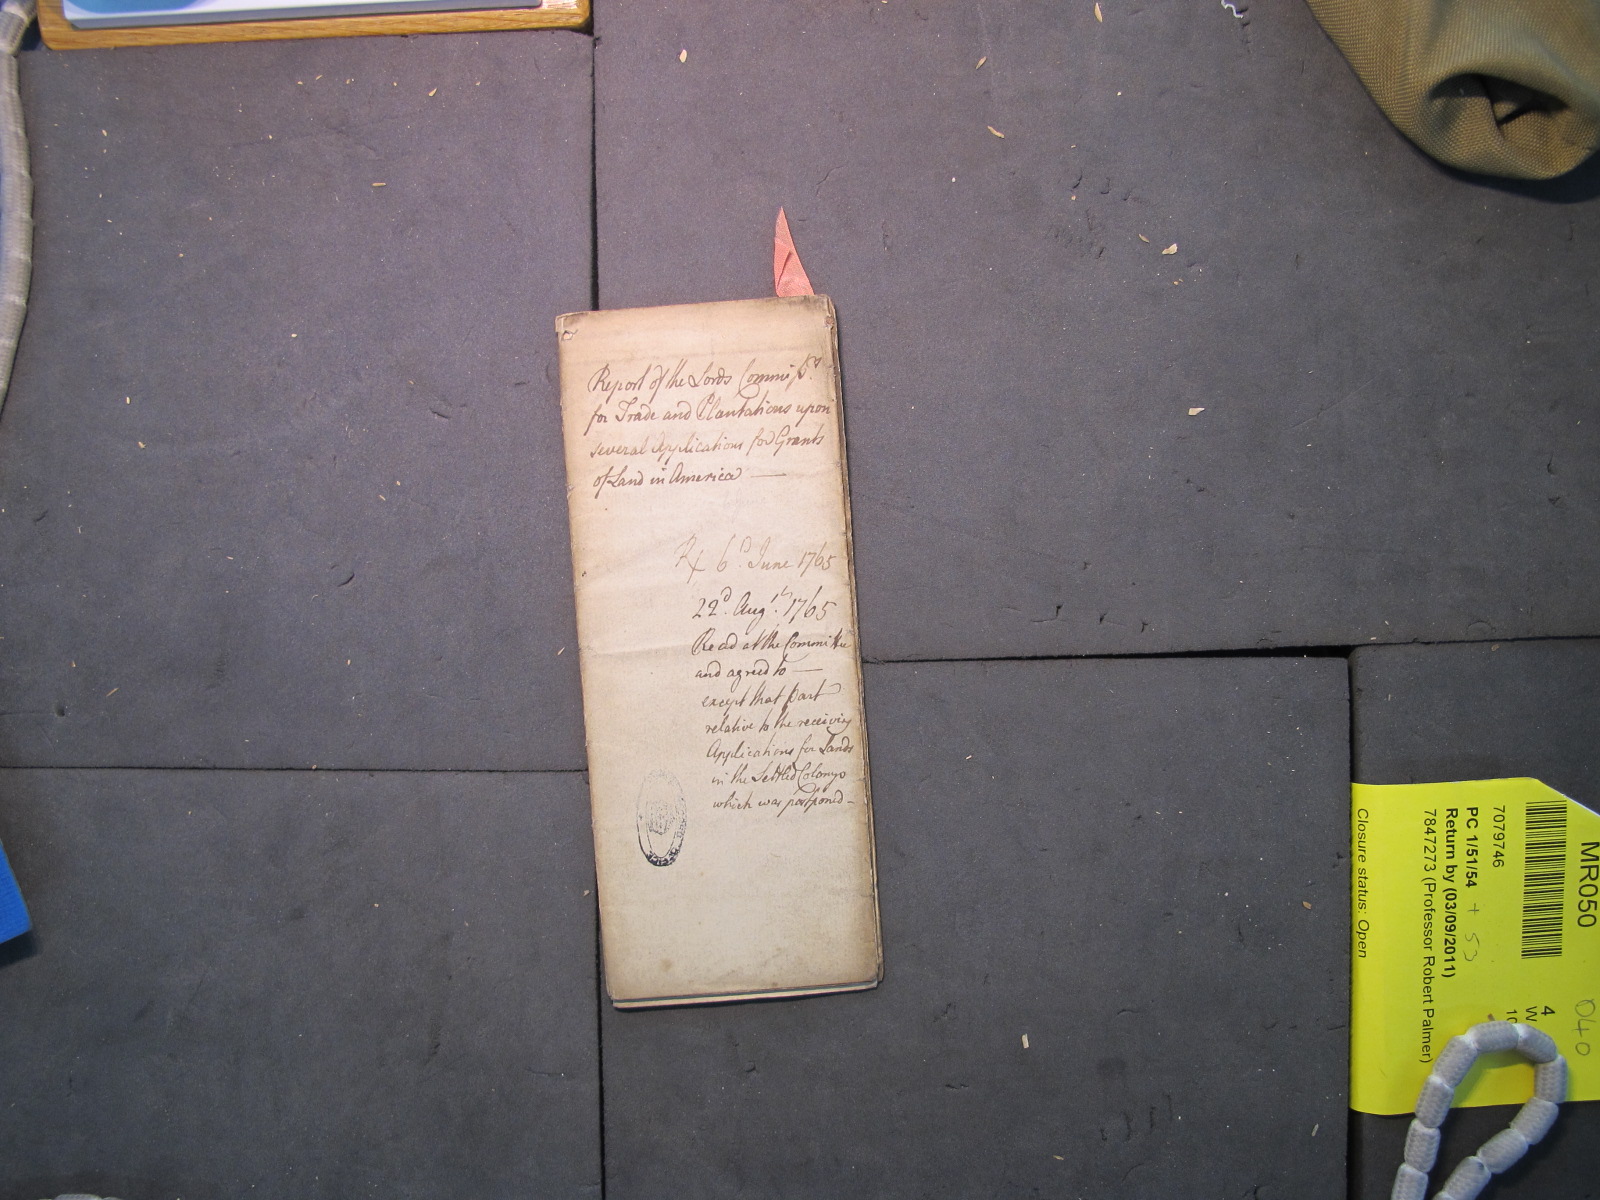 Report of the Lords Commiss.rs
for Trade and Plantations upon
several Applications for Grants
of Land in America —
Rx 6.th June 1765
22.d Aug.st 1765
Read at the Committee
and agreed to —
except that part
relative to the receiving
Applications for Lands
in the Settled Colonys
which was postponed —
MR050
040
7079746
PC 1/51/54 + 53
Return by (03/09/2011)
7847273 (Professor Robert Palmer)
Closure status: Open
4
W
10